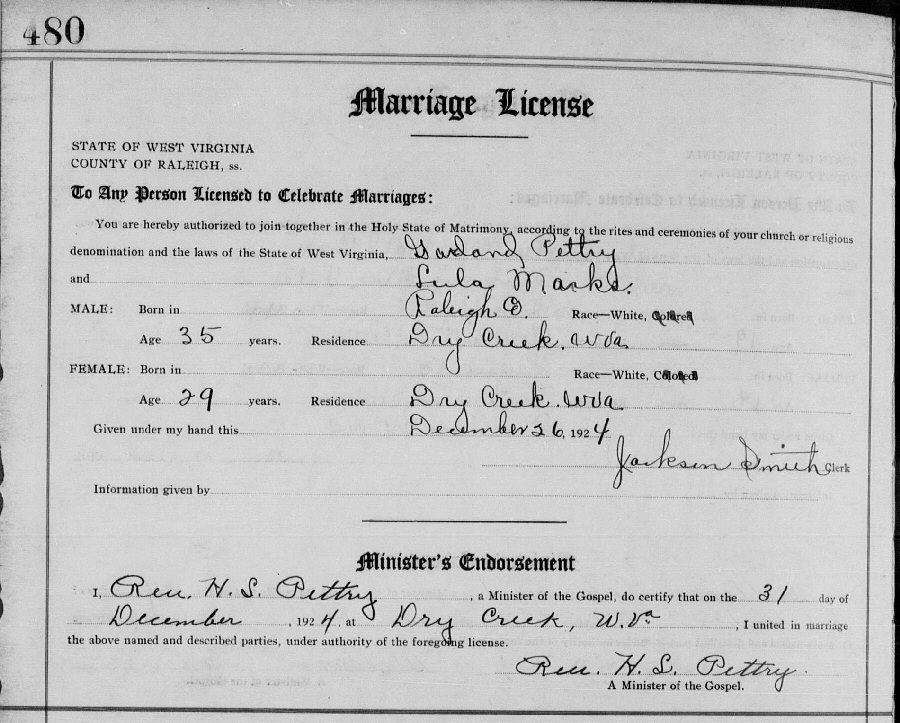 480
Marriage License
STATE OF WEST VIRGINIA
COUNTY OF RALEIGH, ss.
To Any Person Licensed to Celebrate Marriages:
You are hereby authorized to join together in the Holy State of Matrimony, according to the rites and ceremonies of your church or religious
denomination and the laws of the State of West Virginia, Garland Pettry
and Lula Marks.
MALE: Born in Raleigh Co. Race—White, Colored
Age 35 years. Residence Dry Creek. WVa.
FEMALE: Born in Race—White, Colored
Age 29 years. Residence Dry Creek. WVa
Given under my hand this December 26, 1924
Jackson Smith Clerk
Information given by
Minister's Endorsement
I, Rev. H. S. Pettry, a Minister of the Gospel, do certify that on the 31 day of
December, 1924, at Dry Creek, W. Va, I united in marriage
the above named and described parties, under authority of the foregoing license.
Rev. H. S. Pettry.
A Minister of the Gospel.